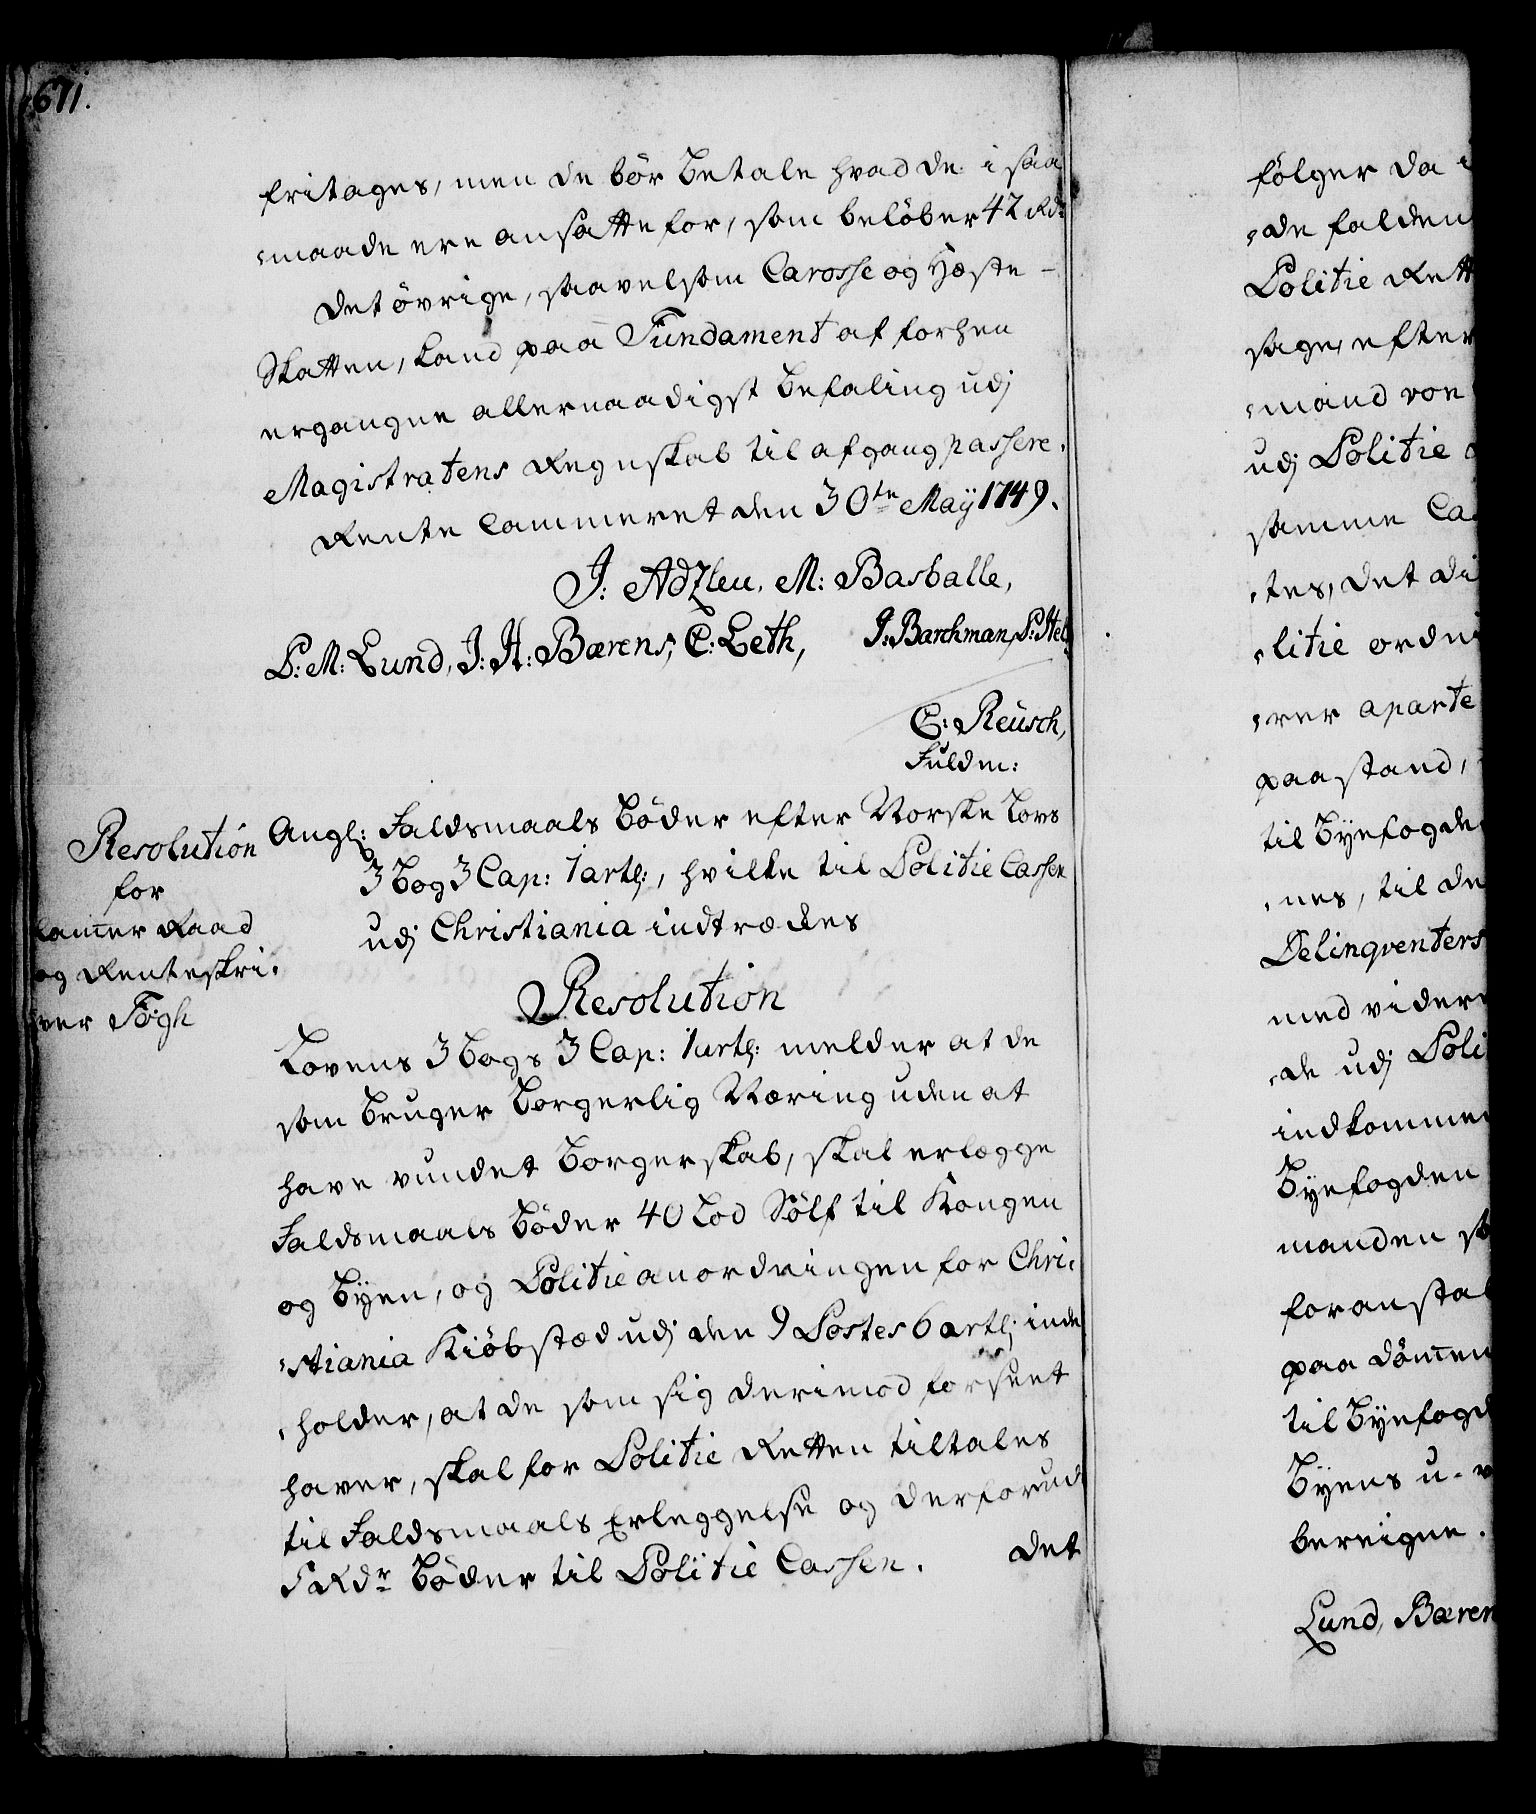 671.
fritages, men de bör betale hvad de i saa
maade ere ansatte for, som belöber 42 Rdr
Det övrige, saavelsom Carosse og Heste-
Skatten, kand paa Fundament af forhen
ergangne allernaadigst befaling udj
Magistratens Regnskab til afgang passere.
Rente Cammeret den 30te Maÿ 1749.
J: Adzleu, M: Basballe,
P: M: Lund, J: H: Bærens, C: Leth, J: Barchman, P: Hel
C: Reusch,
Fuldm:
Resolution
for
Camer Raad
og Renteskri-
ver Fogh
Angl: Faldsmaals Böder efter Norske Lovs
3 Bog 3 Cap: 1 artl:, hvilke til Politie Cassen
udj Christiania indtrædes
Resolution
Lovens 3 Bogs 3 Cap: 1 artl: melder at de
som bruger Borgerlig Næring uden at
have vundet Borgerskab, skal erlægge
Faldsmaals Böder 40 Lod Sölf til Kongen
og Byen, og Politie anordningen for Chri-
stiania Kiöbstæd udj den 9 Postes 6 artl; inde
holder, at de som sig derimod forseet
haver, skal for Politie Retten tiltales
til Faldsmaals Erleggelse og derforud
5 Rdr Böder til Politie Cassen.
Det
fölger da
de falden
Politie Rett
sage, efter
mand von
udj Politie
samme Ca
tes, det di
litie ordni
rer aparte
paastand,
til Byefogde
nes, til de
Delinqventers
med videre
de udj Poli
indkommen
Byefogden
manden
foranstal
paa dömen
til Byefogd
Byens u-
beregne.
Lund, Bæren